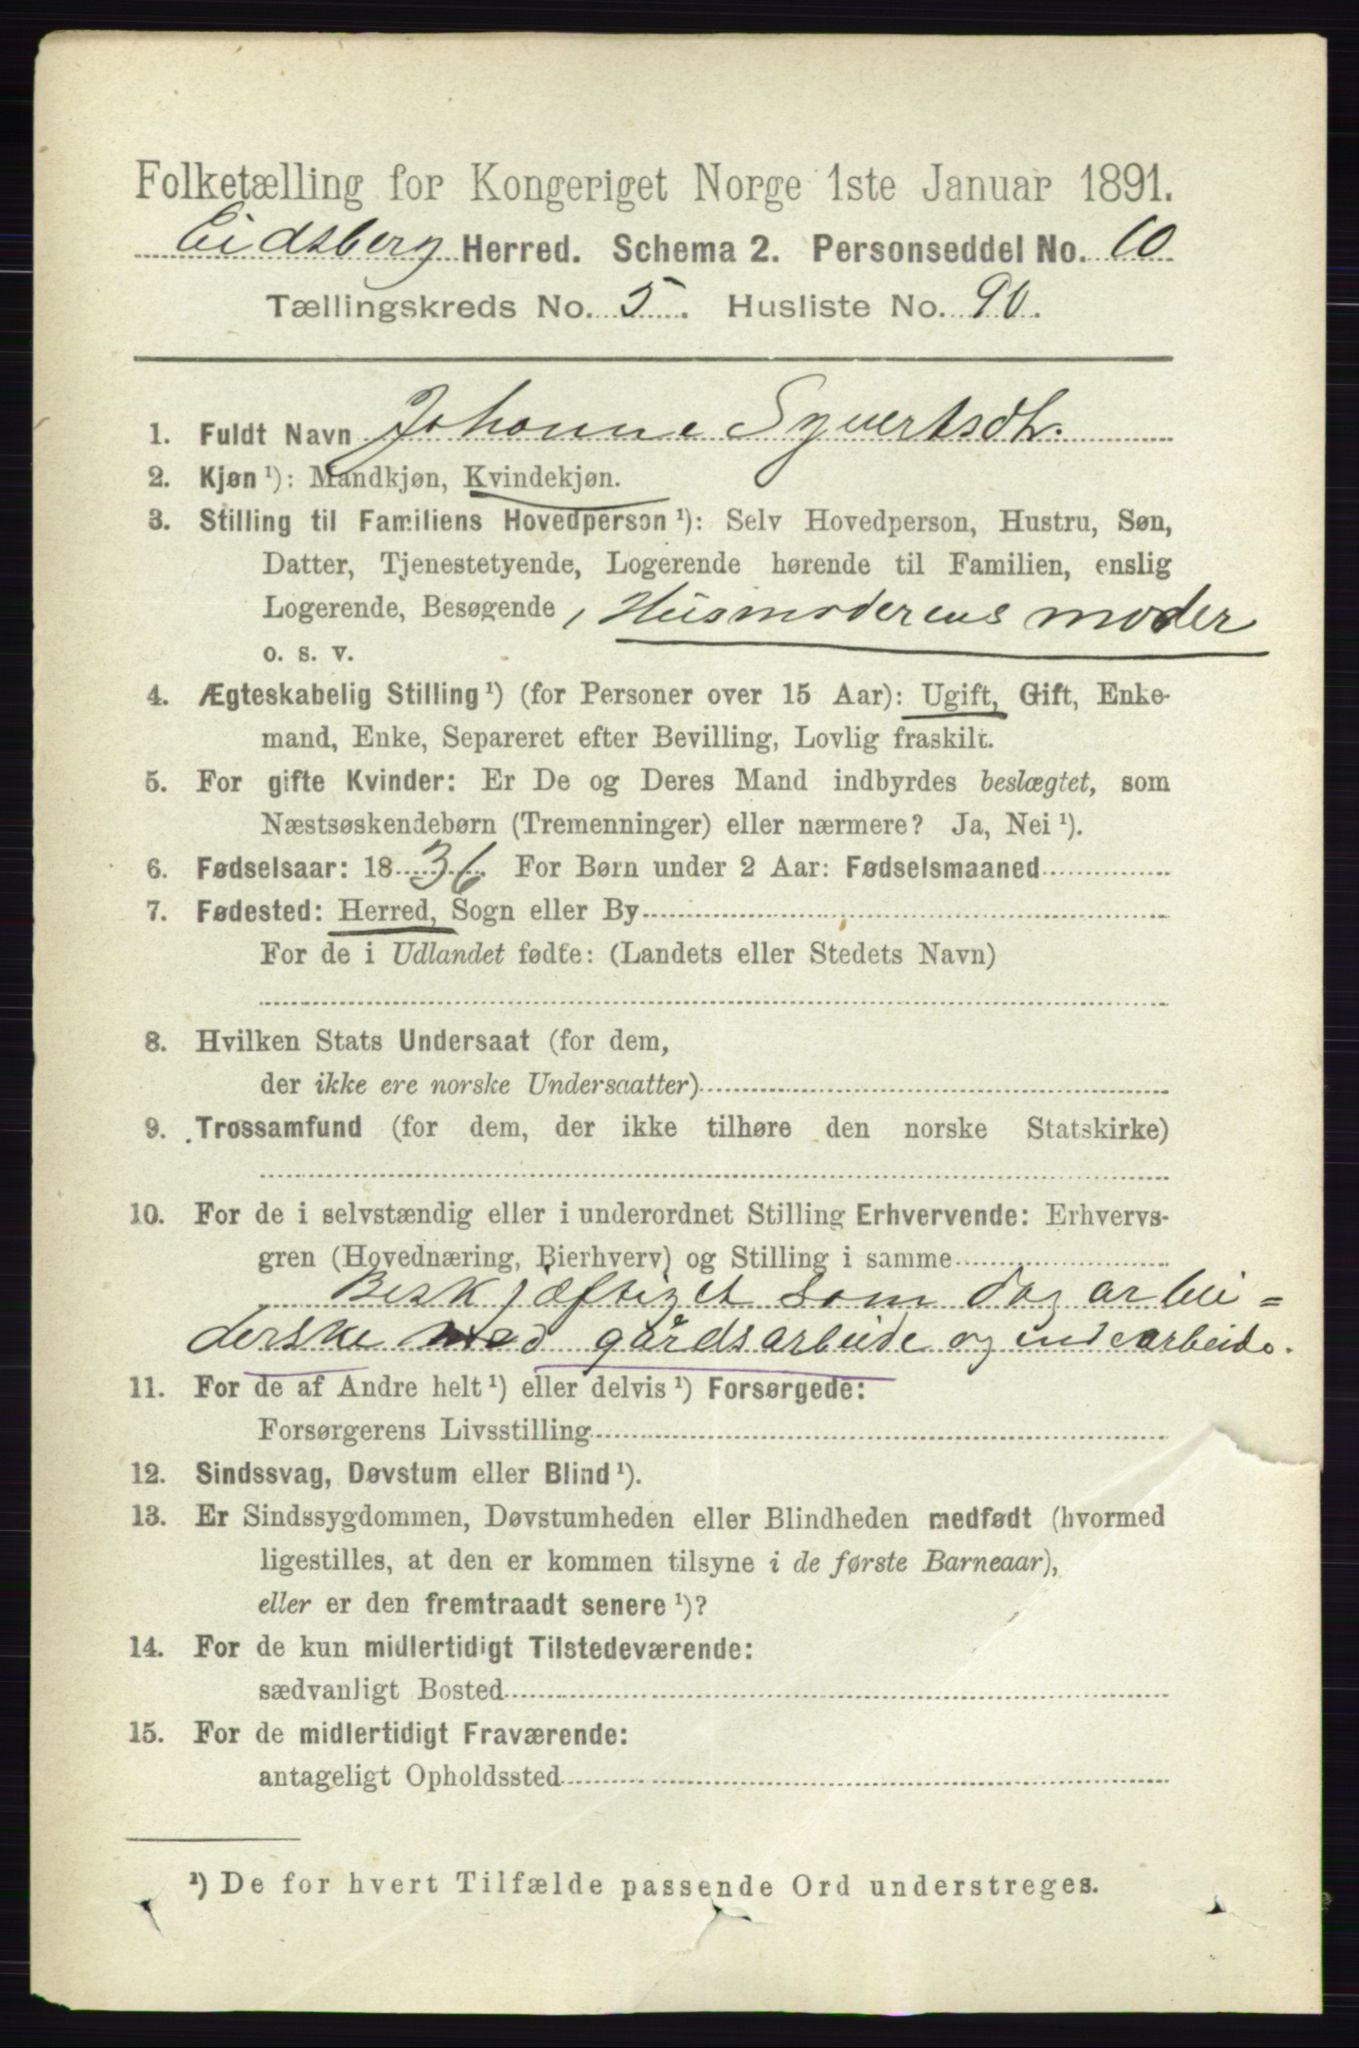 Folketælling for Kongeriget Norge 1ste Januar 1891.
Eidsberg Herred. Schema 2. Personseddel No. 10
Tællingskreds No. 5. Husliste No. 90.
1. Fuldt Navn Johanne Syvertsdtr.
2. Kjøn ¹): Mandkjøn, Kvindekjøn.
3. Stilling til Familiens Hovedperson ¹): Selv Hovedperson, Hustru, Søn,
Datter, Tjenestetyende, Logerende hørende til Familien, enslig
Logerende, Besøgende, Husmoderens moder
o. s. v.
4. Ægteskabelig Stilling ¹) (for Personer over 15 Aar): Ugift, Gift, Enke-
mand, Enke, Separeret efter Bevilling, Lovlig fraskilt.
5. For gifte Kvinder: Er De og Deres Mand indbyrdes beslægtet, som
Næstsøskendebørn (Tremenninger) eller nærmere? Ja, Nei ¹).
6. Fødselsaar: 1836 For Børn under 2 Aar: Fødselsmaaned
7. Fødested: Herred, Sogn eller By
For de i Udlandet fødte: (Landets eller Stedets Navn)
8. Hvilken Stats Undersaat (for dem,
der ikke ere norske Undersaatter)
9. Trossamfund (for dem, der ikke tilhøre den norske Statskirke)
10. For de i selvstændig eller i underordnet Stilling Erhvervende: Erhvervs-
gren (Hovednæring, Bierhverv) og Stilling i samme
Beskjæftiget som dagarbei=
derske med gårdsarbeide og indearbeide.
11. For de af Andre helt ¹) eller delvis ¹) Forsørgede:
Forsørgerens Livsstilling
12. Sindssvag, Døvstum eller Blind ¹).
13. Er Sindssygdommen, Døvstumheden eller Blindheden medfødt (hvormed
ligestilles, at den er kommen tilsyne i de første Barneaar),
eller er den fremtraadt senere ¹)?
14. For de kun midlertidigt Tilstedeværende:
sædvanligt Bosted
15. For de midlertidigt Fraværende:
antageligt Opholdssted
¹) De for hvert Tilfælde passende Ord understreges.